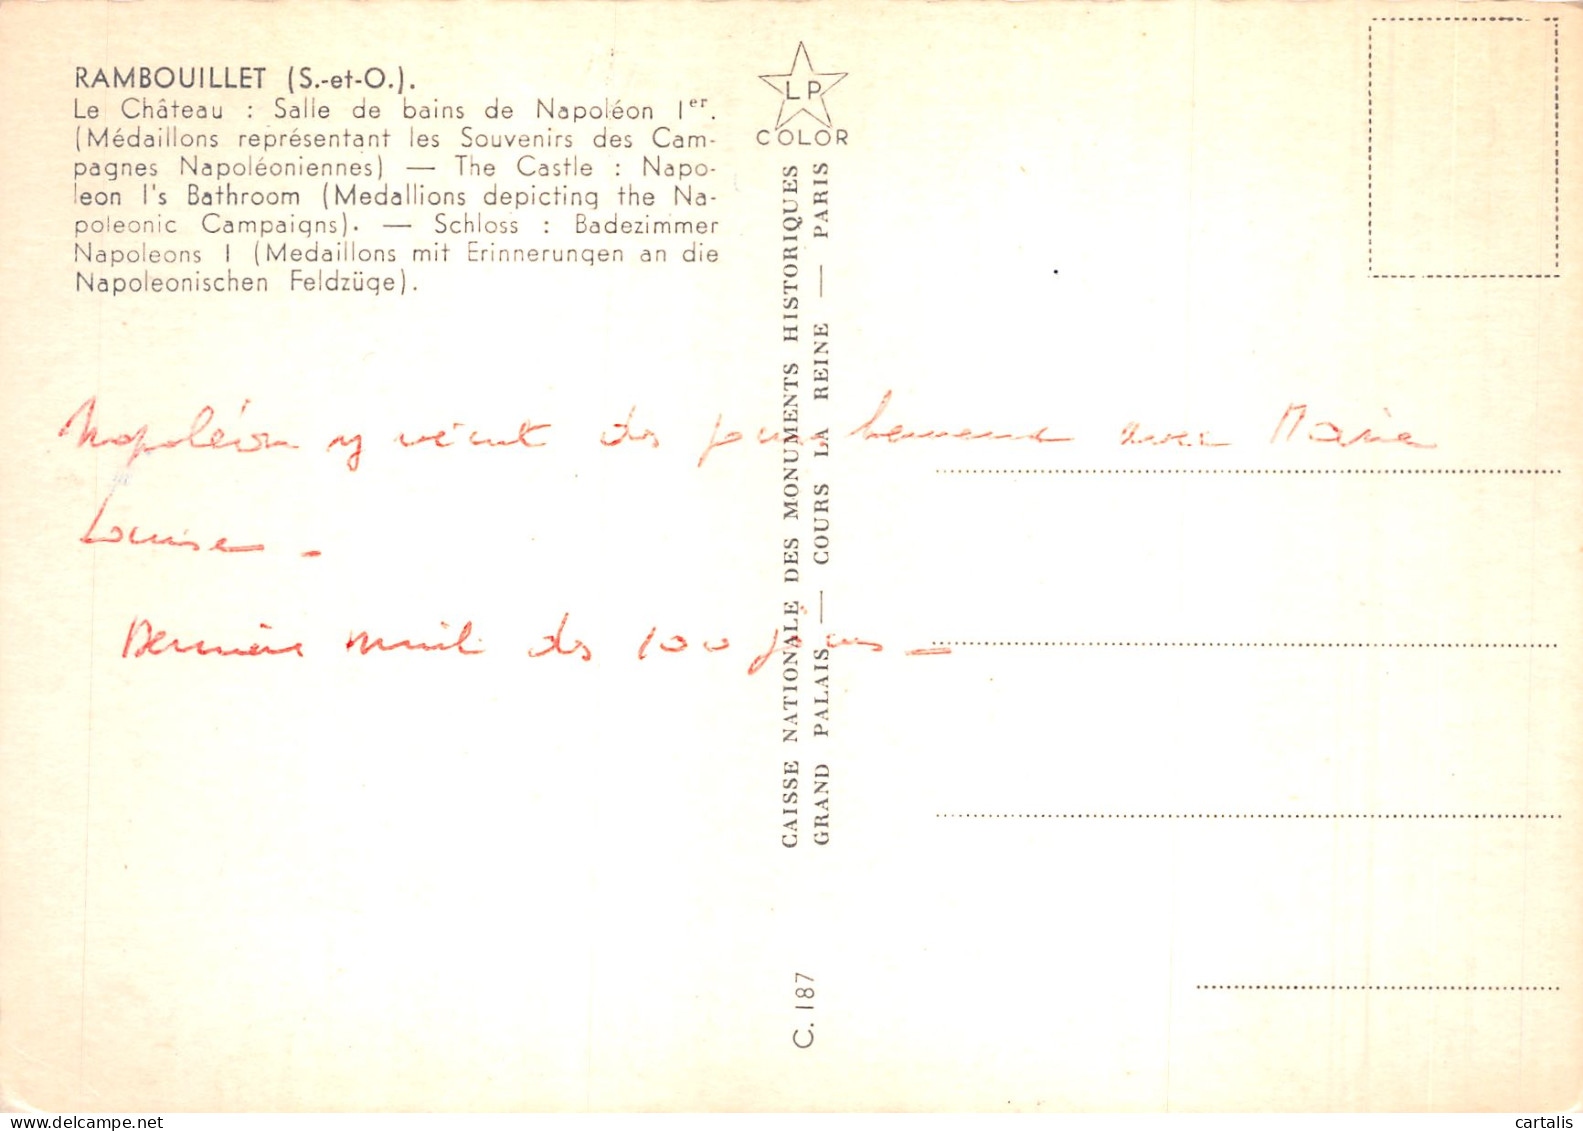 RAMBOUILLET (S.-et-O.).
Le Château : Salle de bains de Napoléon Ier.
(Médaillons représentant les Souvenirs des Cam-
pagnes Napoléoniennes) — The Castle : Napo-
leon I's Bathroom (Medallions depicting the Na-
poleonic Campaigns). — Schloss : Badezimmer
Napoleons I (Medaillons mit Erinnerungen an die
Napoleonischen Feldzüge).
LP
COLOR
CAISSE NATIONALE DES MONUMENTS HISTORIQUES
GRAND PALAIS — COURS LA REINE — PARIS
Napoléon y vécut des jours heureux avec Marie
Louise -
Dernière nuit des 100 jours -
C. 187
delcampe.net
cartalis